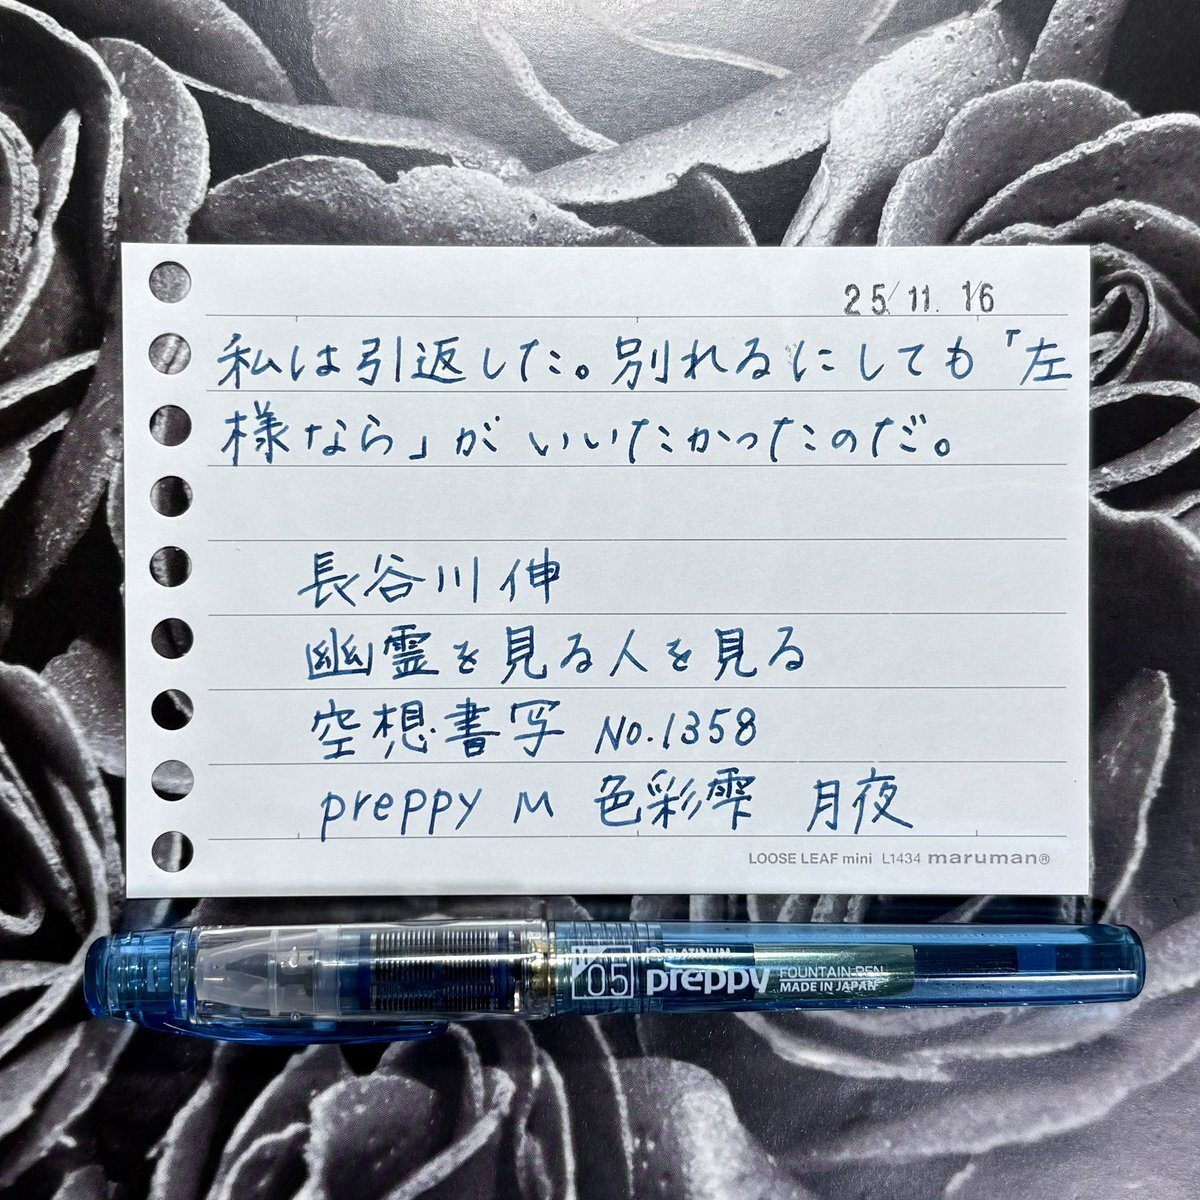 25/11.16
私は引返した。別れるにしても「左
様なら」がいいたかったのだ。
長谷川伸
幽霊を見る人を見る
空想書写 No.1358
preppy M 色彩雫 月夜
LOOSE LEAF mini L1434 maruman®
05 PLATINUM
preppy FOUNTAIN PEN
MADE IN JAPAN